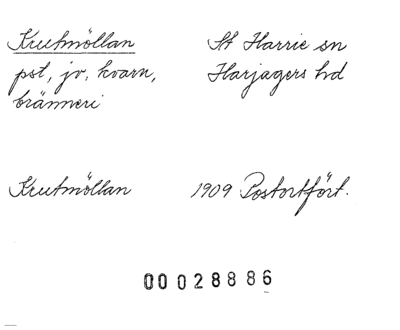 Krutmöllan St Harrie sn
pst, jv, kvarn, Harjagers hd
bränneri
Krutmöllan 1909 Postortfört.
00028886